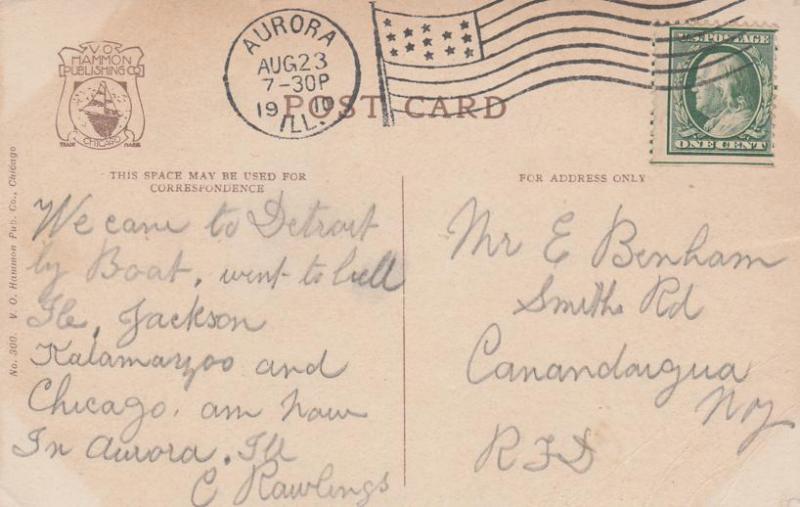 V.O.
HAMMON
PUBLISHING CO
CHICAGO
TRADE MARK
AURORA
AUG 23
7-30P
1910
ILL.
U.S. POSTAGE
ONE CENT
POST CARD
THIS SPACE MAY BE USED FOR
CORRESPONDENCE
FOR ADDRESS ONLY
No. 300. V. O. Hammon Pub. Co., Chicago
We came to Detroit
by Boat, went to bell
Ile, Jackson
Kalamazoo and
Chicago. am now
In Aurora. Ill
C Rawlings
Mr E Benham
Smith Rd
Canandaigua
NY
RFD